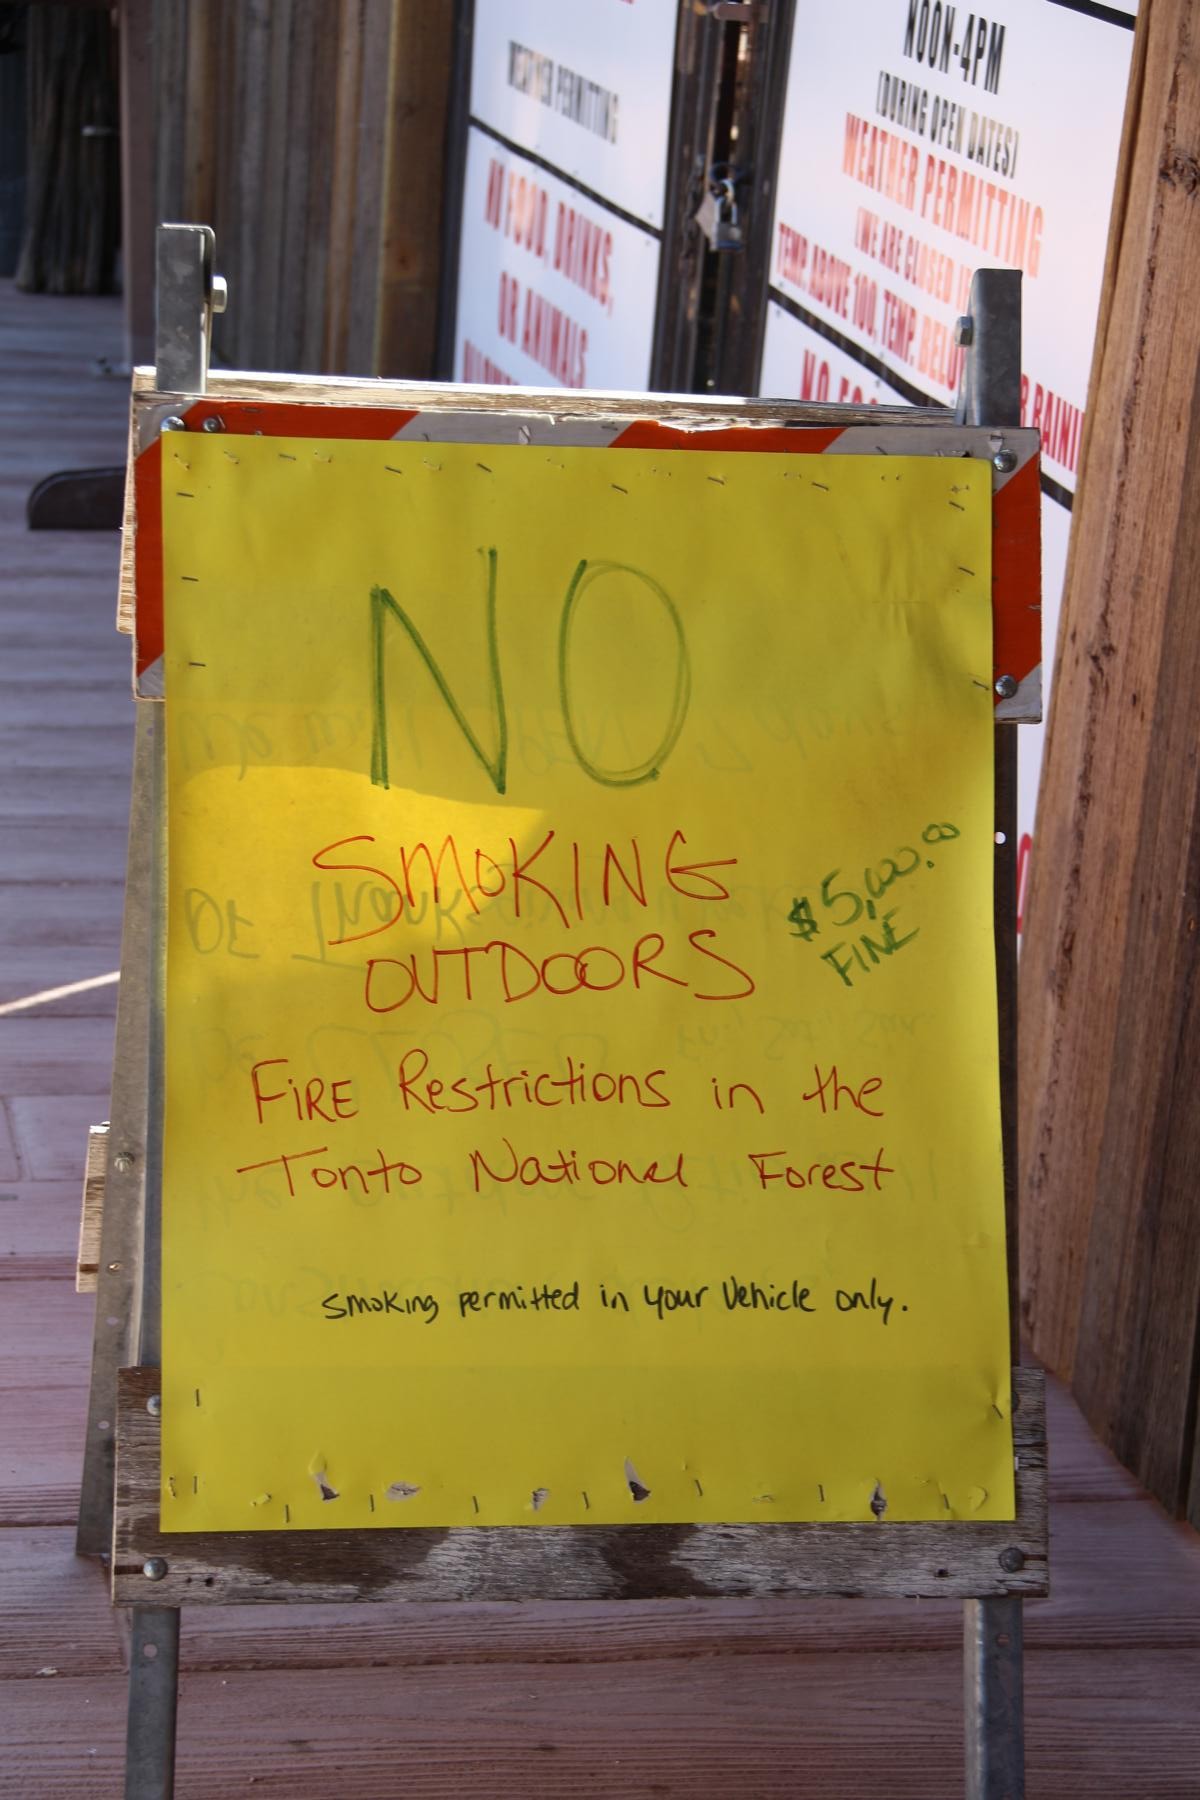 WEATHER PERMITTING
NO FOOD, DRINKS,
OR ANIMALS
NOON-4PM
(DURING OPEN DATES)
WEATHER PERMITTING
(WE ARE CLOSED
TEMP. ABOVE 100, TEMP.
NO
SMOKING
OUTDOORS
$5,000.00
FINE
FIRE Restrictions in the
Tonto National Forest
smoking permitted in your Vehicle only.